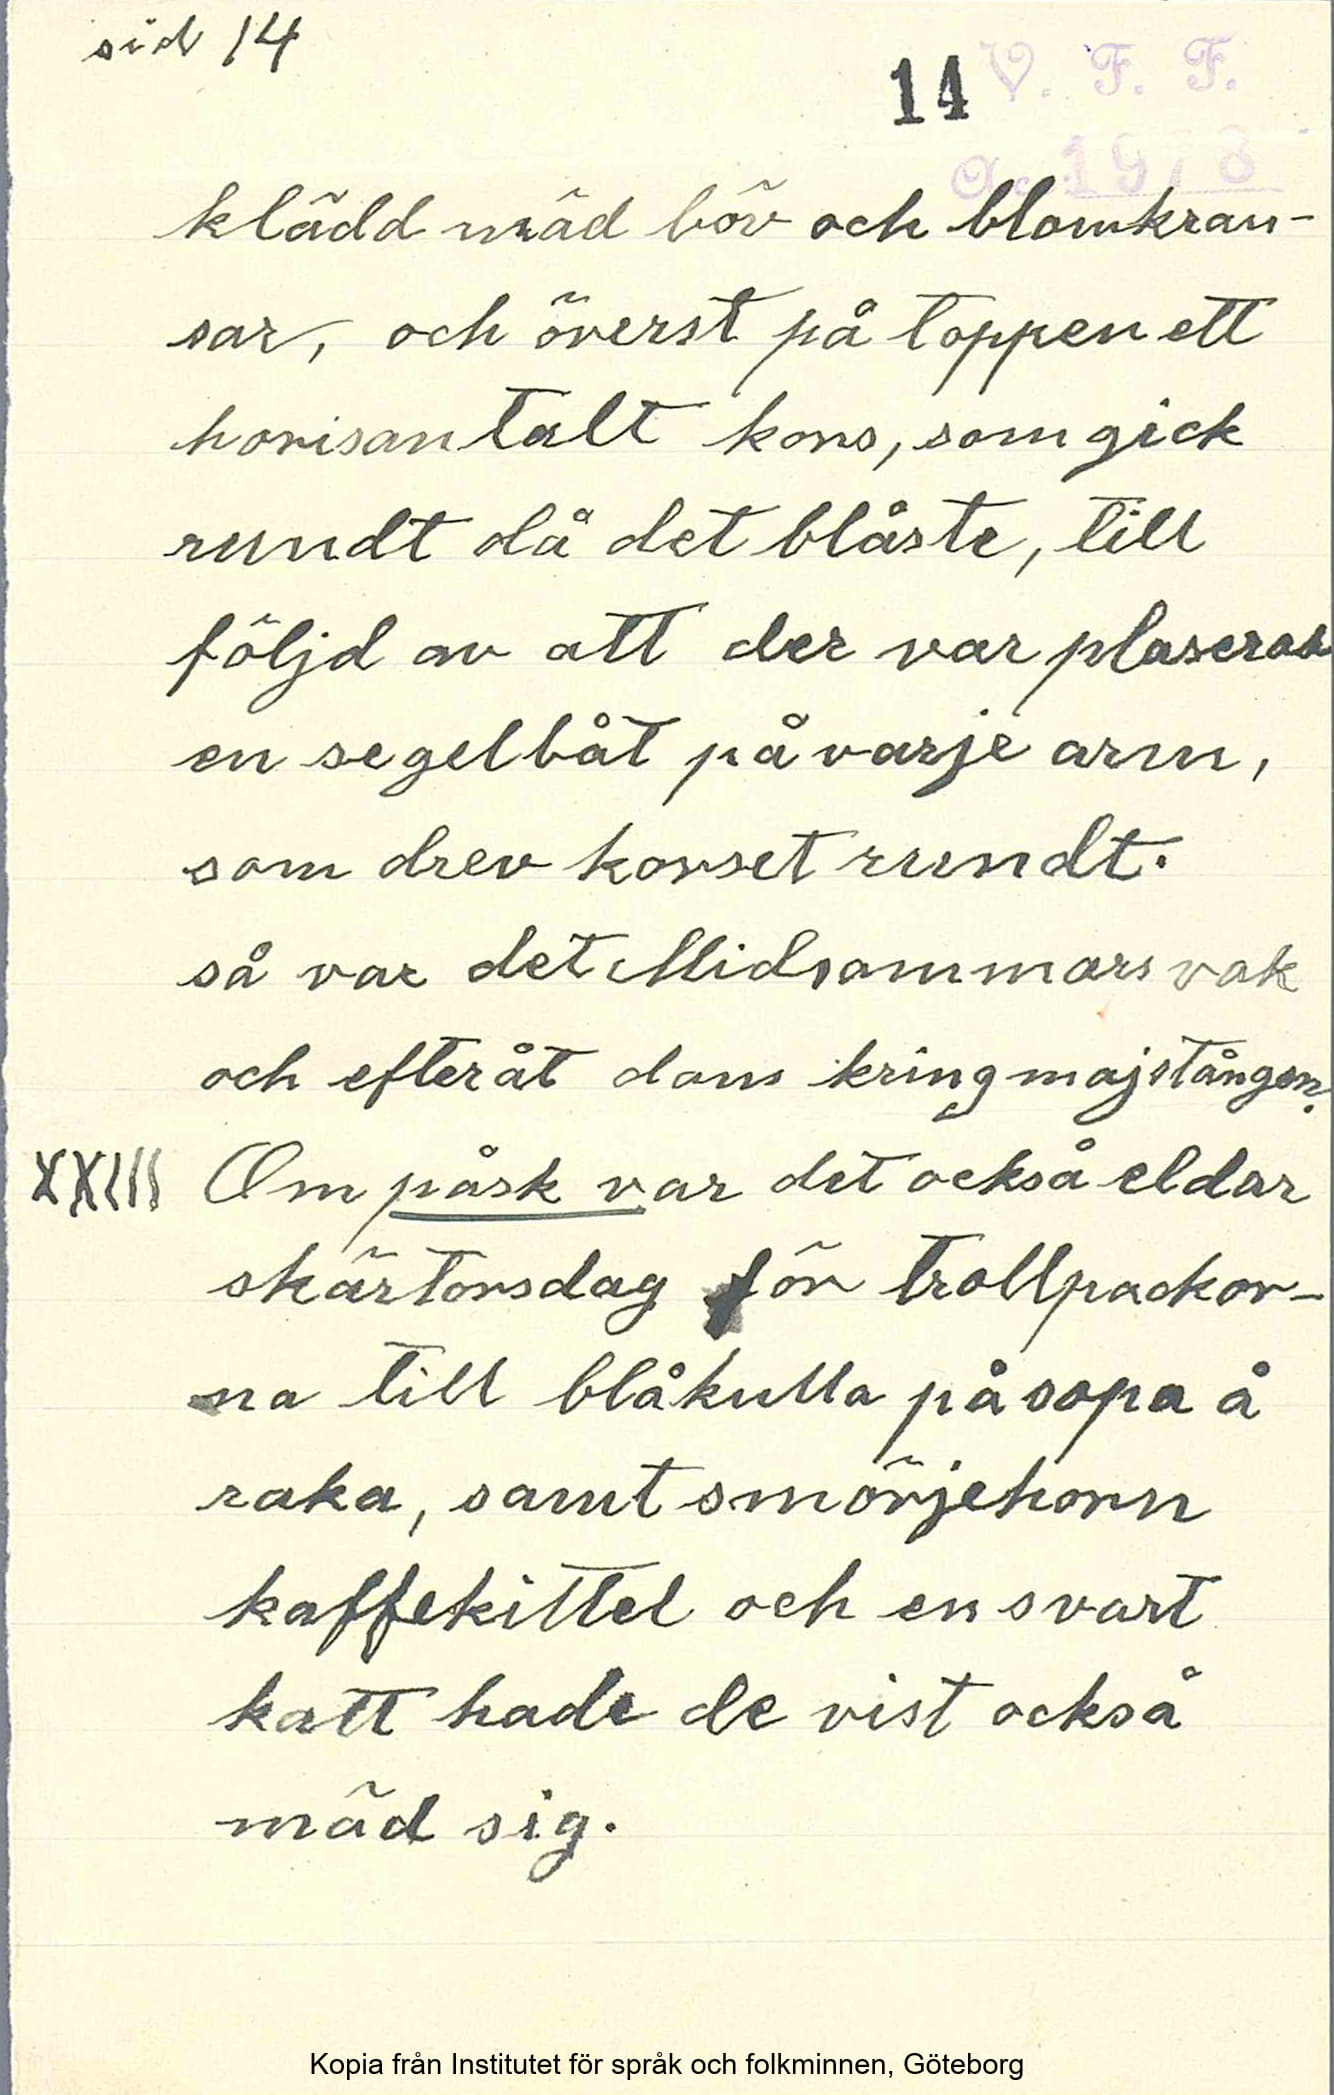 sid 14
14 V. F. F.
klädd mäd löv och blomkran-
sar, och överst på toppen ett
horisontalt kors, som gick
rundt då det blåste, till
följd av att der var plaserad
en segelbåt på varje arm,
som drev korset rundt.
så var det Midsommarsvak
och efteråt dans kring majstången.
XXIII Om påsk var det också eldar
skärtorsdag för trollpackor-
na till blåkulla på sopa å
raka, samt smörjehorn
kaffekittel och en svart
katt hade de vist också
mäd sig.
Kopia från Institutet för språk och folkminnen, Göteborg